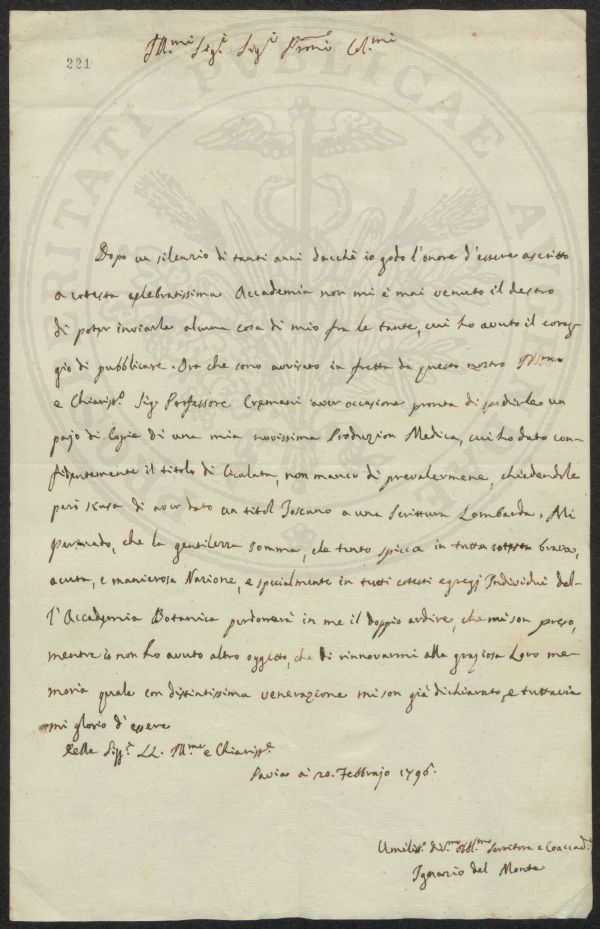 Ill.mi Sig.i Sig.i Pr̅oni Col.mi
221
Dopo un silenzio di tanti anni dacchè io godo l'onore d'essere ascritto
a cotesta celebratissima Accademia non mi è mai venuto il destro
di poter inviarle alcuna cosa di mio fra le tante, cui ho avuto il corag-
gio di pubblicare. Ora che sono avvisato in fretta da questo nostro Ill.mo
e Chiariss.o Sig.r Professore Cremani aver occasione pronta di spedirle un
pajo di Copie di una mia novissima Produzion Medica, cui ho dato con-
fidentemente il titolo di Cicalata, non manco di prevalermene, chiedendole
però scusa di aver dato un titol Toscano a una Scrittura Lombarda. Mi
persuado, che la gentilezza somma, che tanto spicca in tutta cotesta brava,
acuta, e manierosa Nazione, e specialmente in tutti cotesti egregj Individui del-
l'Accademia Botanica perdonerà in me il doppio ardire, che mi son preso,
mentre io non ho avuto altro oggetto, che di rinnovarmi alla graziosa Loro me-
moria quale con distintissima venerazione mi son già dichiarato, e tuttavia
mi glorio d'essere
Delle Sigg.e LL. Ill.me e Chiariss.e
Pavia a' 20. Febbrajo 1796.
Umiliss.o Div.mo Obbl.mo Servitore e Coaccad.o
Ignazio del Monte
SECURITATI PUBLICAE